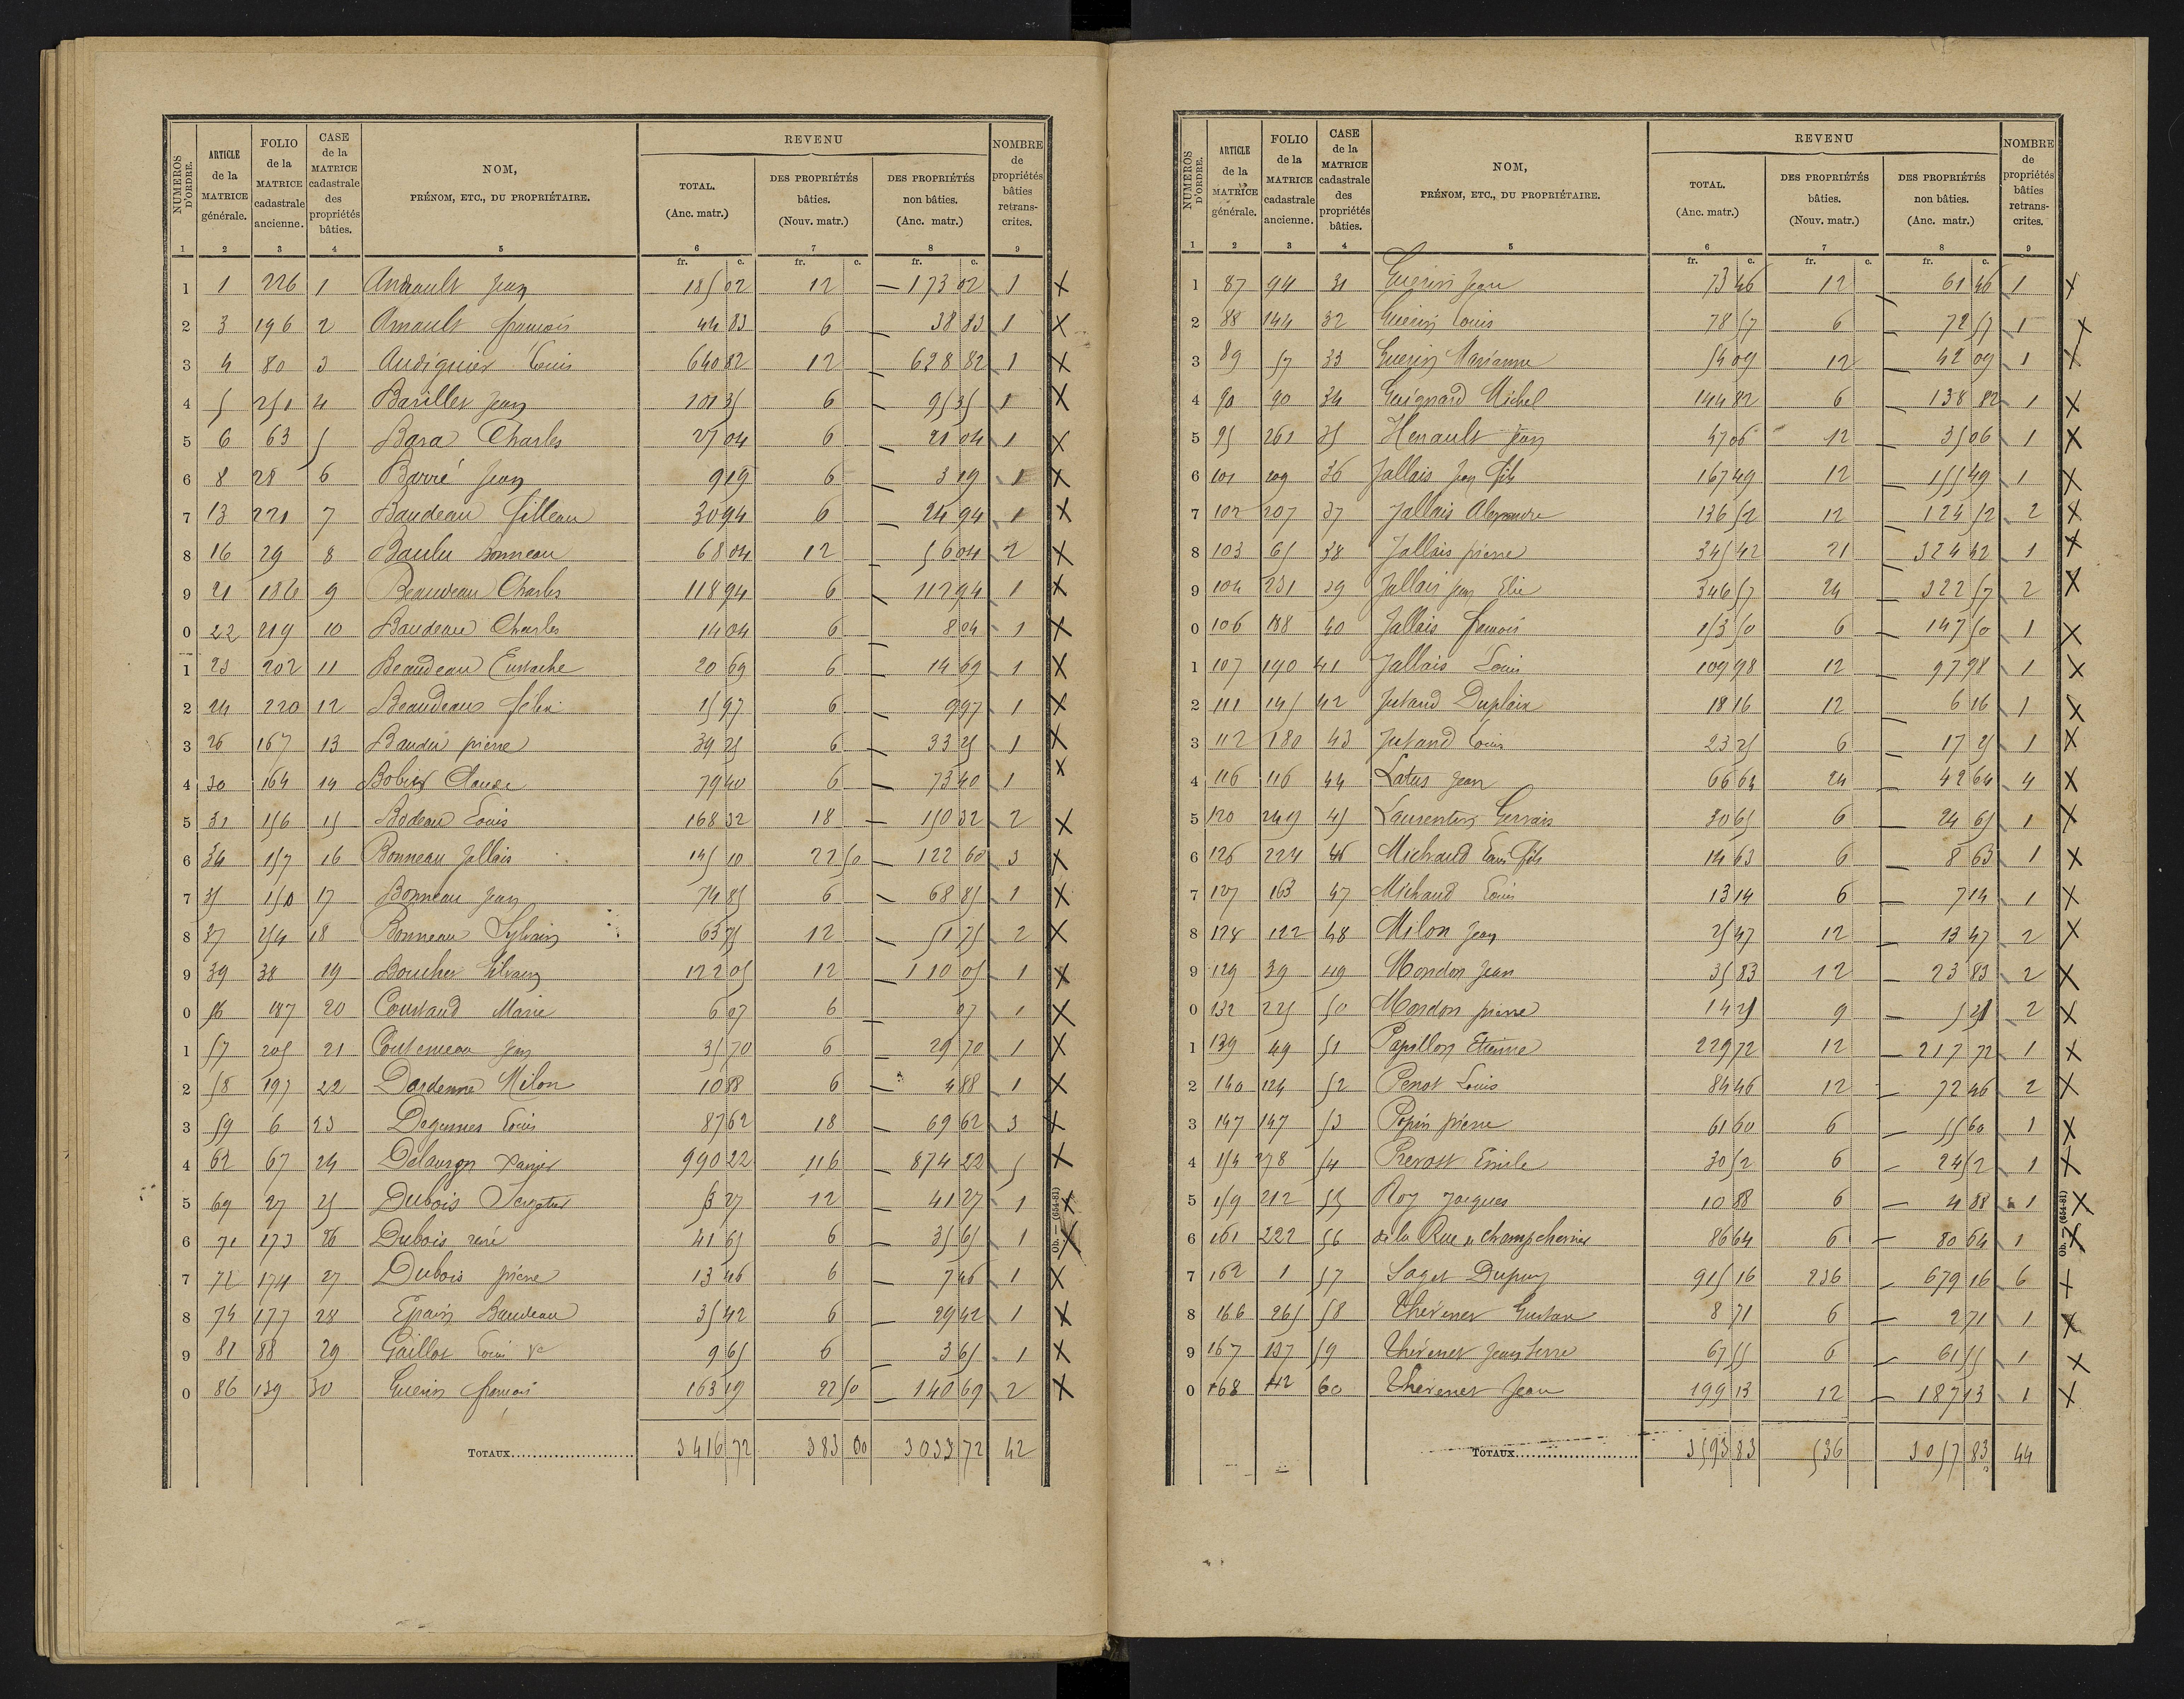 NUMÉROS D'ORDRE. ARTICLE de la MATRICE générale. FOLIO de la MATRICE cadastrale ancienne. CASE de la MATRICE cadastrale des propriétés bâties. NOM, PRÉNOM, ETC., DU PROPRIÉTAIRE. REVENU TOTAL. (Anc. matr.) DES PROPRIÉTÉS bâties. (Nouv. matr.) DES PROPRIÉTÉS non bâties. (Anc. matr.) NOMBRE de propriétés bâties retranscrites.
1 2 3 4 5 6 7 8 9
fr. c. fr. c. fr. c.
1 1 226 1 Andrault Jean 185 02 12 — 173 02 1 X
2 3 196 2 Arnault françois 44 83 6 — 38 83 1 X
3 4 80 3 Audiguier Louis 640 82 12 — 628 82 1 X
4 5 251 4 Barillet Jean 101 35 6 — 95 35 1 X
5 6 63 5 Bara Charles 27 04 6 — 21 04 1 X
6 8 28 6 Barré Jean 9 19 6 — 3 19 1 X
7 13 221 7 Baudeau filleau 30 94 6 — 24 94 1 X
8 16 29 8 Baulu Bonneau 68 04 12 — 56 04 2 X
9 21 186 9 Beauveau Charles 118 94 6 — 112 94 1 X
0 22 219 10 Baudeau Charles 14 04 6 — 8 04 1 X
1 23 202 11 Beaudeau Eustache 20 69 6 — 14 69 1 X
2 24 220 12 Beaudeau félix 15 97 6 — 9 97 1 X
3 26 167 13 Baudu pierre 39 25 6 — 33 25 1 X
4 30 164 14 Bobin Claude 79 40 6 — 73 40 1 X
5 31 156 15 Bodeau Louis 168 32 18 — 150 32 2 X
6 34 157 16 Bonneau Jallais 145 10 22 50 — 122 60 3 X
7 35 150 17 Bonneau Jean 74 85 6 — 68 85 1 X
8 37 254 18 Bonneau Sylvain 63 75 12 — 51 75 2 X
9 39 38 19 Boucher Silvain 122 05 12 — 110 05 1 X
0 56 187 20 Coustaud Marie 6 07 6 — 07 1 X
1 57 205 21 Coutemeau Jean 35 70 6 — 29 70 1 X
2 58 197 22 Dardenne Milon 10 88 6 — 4 88 1 X
3 59 6 23 Degesnes Louis 87 62 18 — 69 62 3 X
4 62 67 24 Delaurgn Panier 990 22 116 — 874 22 5 X
5 69 27 25 Dubois 53 27 12 — 41 27 1 X
6 71 173 26 Dubois réné 41 65 6 — 35 65 1 X
7 72 174 27 Dubois pierre 13 46 6 — 7 46 1 X
8 74 177 28 Epain Baudeau 35 42 6 — 29 42 1 X
9 81 88 29 Gaillot Louis Ve 9 65 6 3 65 1 X
0 86 139 30 Guerin françois 163 19 22 50 — 140 69 2 X
TOTAUX 3416 72 383 00 3033 72 42
Ob. — (654-81)
NUMÉROS D'ORDRE. ARTICLE de la MATRICE générale. FOLIO de la MATRICE cadastrale ancienne. CASE de la MATRICE cadastrale des propriétés bâties. NOM, PRÉNOM, ETC., DU PROPRIÉTAIRE. REVENU TOTAL. (Anc. matr.) DES PROPRIÉTÉS bâties. (Nouv. matr.) DES PROPRIÉTÉS non bâties. (Anc. matr.) NOMBRE de propriétés bâties retranscrites.
1 2 3 4 5 6 7 8 9
fr. c. fr. c. fr. c.
1 87 94 31 Guerin Jean 73 46 12 — 61 46 1 X
2 88 144 32 Guerin Louis 78 57 6 — 72 57 1 X
3 89 57 33 Guerin Marianne 54 09 12 — 42 09 1 X
4 90 90 34 Guignard Michel 144 82 6 — 138 82 1 X
5 95 261 35 Henault Jean 47 06 12 — 35 06 1 X
6 101 209 36 Jallais Jean fils 167 49 12 — 155 49 1 X
7 102 207 37 Jallais Alexandre 136 52 12 — 124 52 2 X
8 103 65 38 Jallais pierre 345 42 21 — 324 42 1 X
9 104 231 39 Jallais Jean Elie 346 57 24 — 322 57 2 X
0 106 188 40 Jallais françois 153 50 6 — 147 50 1 X
1 107 140 41 Jallais Louis 109 98 12 — 97 98 1 X
2 111 145 42 Jutand Duplaix 18 16 12 — 6 16 1 X
3 112 180 43 Jutand Louis 23 25 6 — 17 25 1 X
4 116 116 44 Latus Jean 66 64 24 — 42 64 4 X
5 120 249 45 Laurentin Gervais 30 65 6 — 24 65 1 X
6 126 224 46 Michaud Louis fils 14 63 6 — 8 63 1 X
7 127 163 47 Michaud Louis 13 14 6 — 7 14 1 X
8 128 122 48 Milon Jean 25 47 12 — 13 47 2 X
9 129 39 49 Mondon Jean 35 83 12 — 23 83 2 X
0 132 225 50 Mondon pierre 14 25 9 — 5 25 2 X
1 139 49 51 Papillon Etienne 229 72 12 — 217 72 1 X
2 140 124 52 Penot Louis 84 46 12 — 72 46 2 X
3 147 147 53 Pepin pierre 61 60 6 — 55 60 1 X
4 154 278 54 Prevost Emile 30 52 6 — 24 52 1 X
5 159 212 55 Roy Jacques 10 88 6 — 4 88 1 X
6 161 222 56 de la Rue de champchevrier 86 64 6 — 80 64 1 X
7 162 1 57 Saget Dupuy 915 16 236 — 679 16 6 X
8 166 265 58 Thévenet Gustave 8 71 6 — 2 71 1 X
9 167 137 59 Thévenet Jean 67 55 6 — 61 55 1 X
0 168 42 60 Thévenet Jean 199 13 12 — 187 13 1 X
TOTAUX 3593 83 536 3057 83 44
Ob. — (654-81)